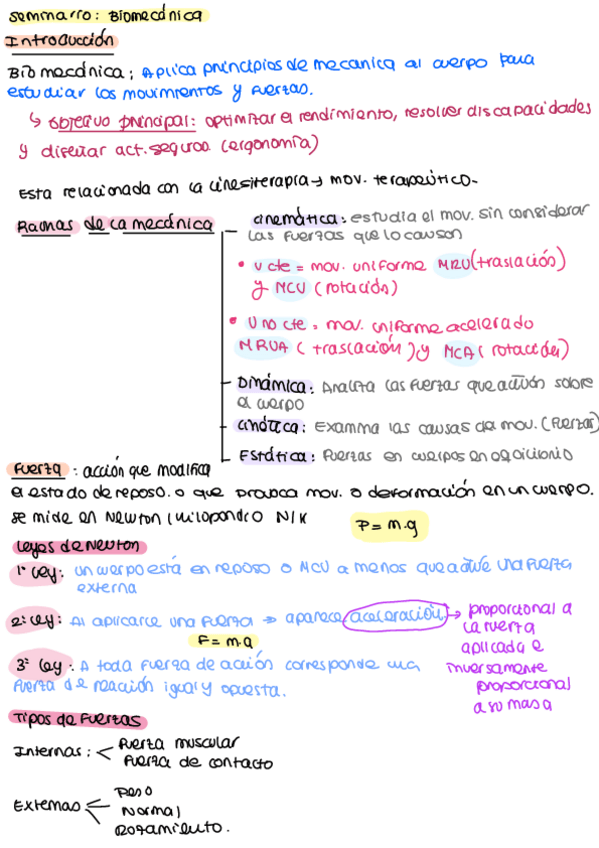 seminario: Biomecánica
Introducción
Biomecánica: Aplica principios de mecanica al cuerpo para
estudiar los movimientos y fuerzas.
↳ objetivo principal: optimizar el rendimiento, resolver discapacidades
y diseñar act. seguras (ergonomía)
Esta relacionada con la cinesiterapia → mov. terapeútico.
Ramas de la mecánica
cinemática: estudia el mov. sin considerar
las fuerzas que lo causan
• v cte = mov. uniforme MRU (traslación)
y MCU (rotación)
• v no cte = mov. uniforme acelerado
MRUA (traslación) y MCA (rotación)
Dinámica: Analiza las fuerzas que actúan sobre
el cuerpo
cinética: Examina las causas del mov. (fuerzas)
Estática: Fuerzas en cuerpos en equilibrio
Fuerza: acción que modifica
el estado de reposo o que provoca mov. o deformación en un cuerpo.
se mide en Newton / Kilopondio N/K
P = m.g
Leyes de Newton
1ª Ley: un cuerpo está en reposo o MCU a menos que actúe una fuerza
externa
2ª Ley: Al aplicarce una fuerza → aparece aceleración → proporcional a
la fuerza
aplicada e
inversamente
proporcional
a su masa
F = m.a
3ª Ley: A toda fuerza de acción corresponde una
fuerza de reacción igual y opuesta.
Tipos de Fuerzas
Internas: < fuerza muscular
fuerza de contacto
Externas < Peso
Normal
Rozamiento.